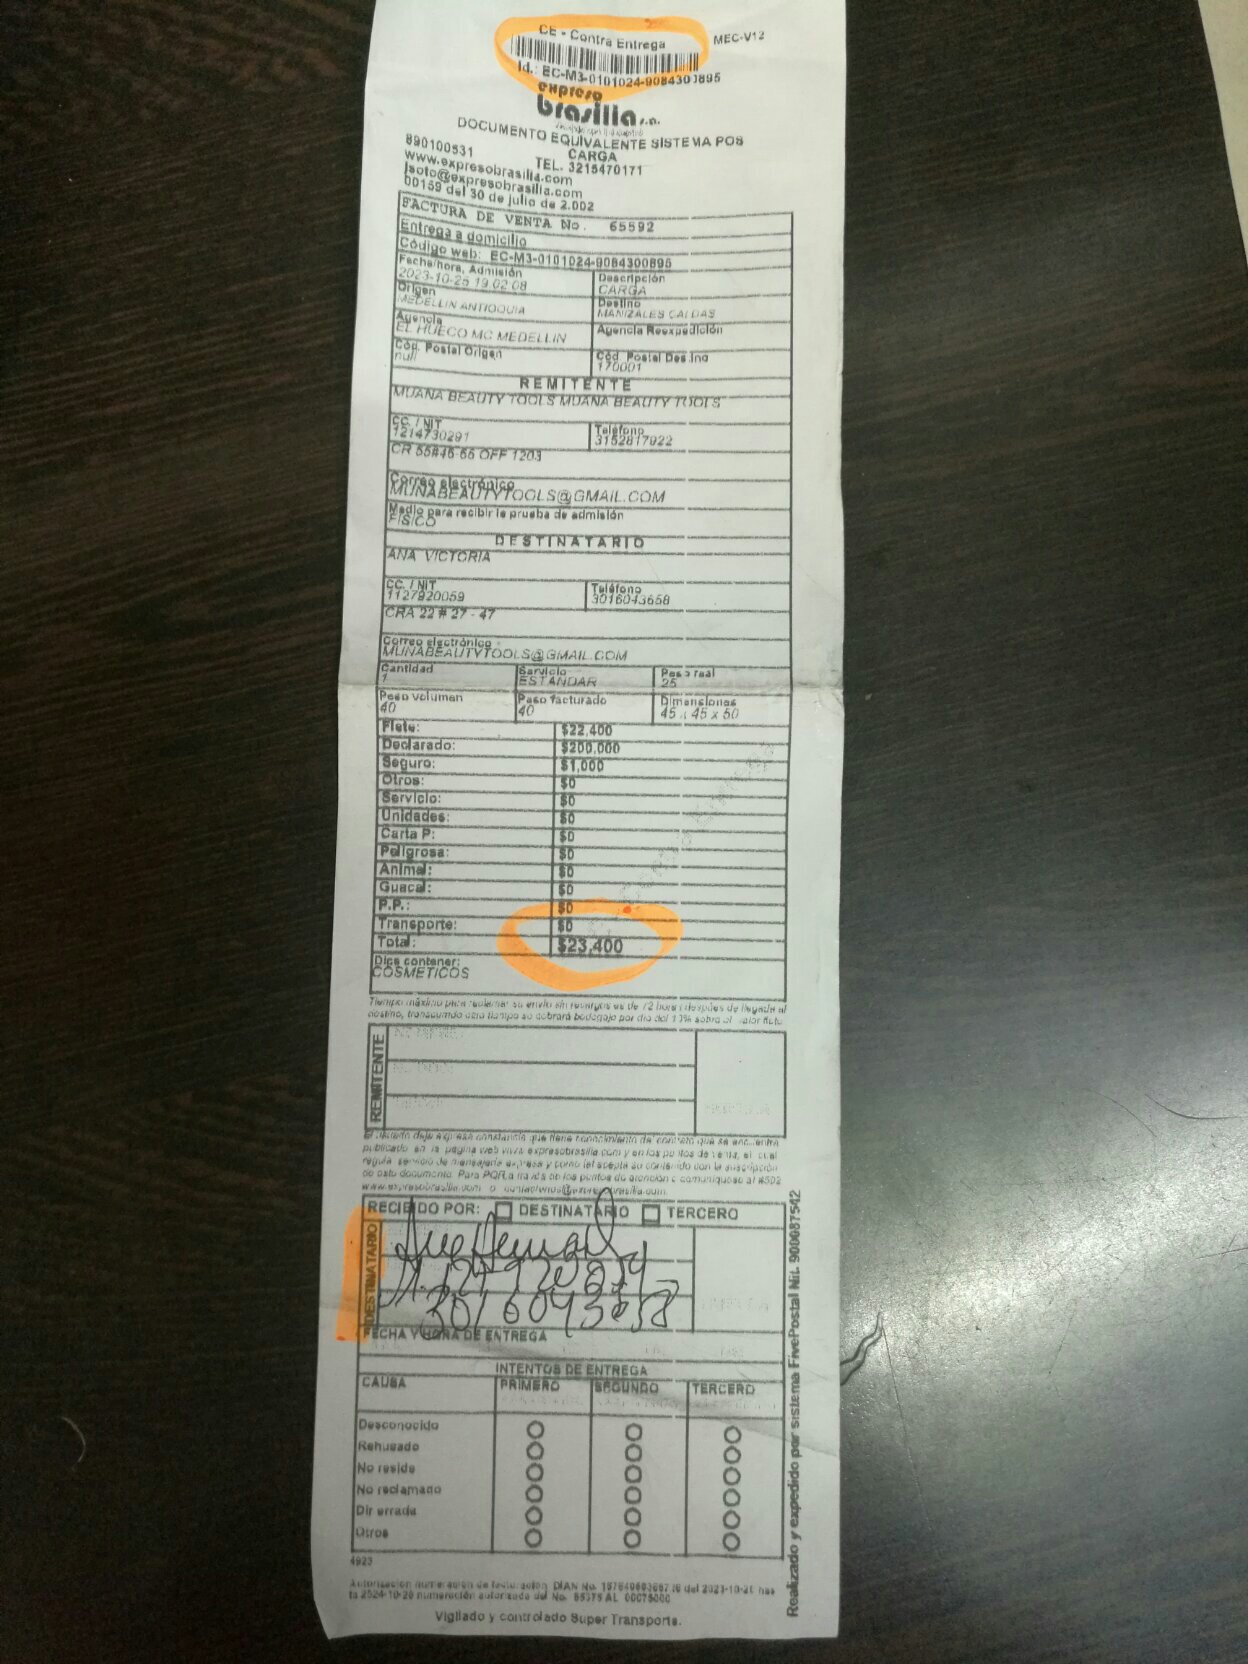 CE - Contra Entrega
MEC-V12
Id.: EC-M3-0101024-9084300895
expreso
brasilia s.a.
DOCUMENTO EQUIVALENTE SISTEMA POS
CARGA
890100531
TEL. 3215470171
www.expresobrasilia.com
lsoto@expresobrasilia.com
00159 del 30 de julio de 2.002
FACTURA DE VENTA No. 65592
Entrega a domicilio
Código web: EC-M3-0101024-9084300895
Fecha/hora, Admisión
2023-10-25 19:02:08
Descripción
CARGA
Origen
MEDELLIN ANTIOQUIA
Destino
MANIZALES CALDAS
Agencia
EL HUECO MC MEDELLIN
Agencia Reexpedición
Cód. Postal Origen
null
Cód. Postal Destino
170001
REMITENTE
MUANA BEAUTY TOOLS MUANA BEAUTY TOOLS
CC. / NIT
1214730291
Teléfono
3152817922
CR 55#46-66 OFF 1203
Correo electrónico
MUNABEAUTYTOOLS@GMAIL.COM
Medio para recibir la prueba de admisión
FISICO
DESTINATARIO
ANA VICTORIA
CC. / NIT
1127920059
Teléfono
3016043658
CRA 22 # 27 - 47
Correo electrónico
MUNABEAUTYTOOLS@GMAIL.COM
Cantidad
1
Servicio
ESTANDAR
Peso real
25
Peso volumen
40
Peso facturado
40
Dimensiones
45 x 45 x 50
Flete: $22,400
Declarado: $200,000
Seguro: $1,000
Otros: $0
Servicio: $0
Unidades: $0
Carta P: $0
Peligrosa: $0
Animal: $0
Guacal: $0
P.P.: $0
Transporte: $0
Total: $23,400
Dice contener:
COSMETICOS
Tiempo máximo para reclamar su envío sin recargos es de 72 horas después de llegada al
destino, transcurrido este tiempo se cobrará bodegaje por día del 10% sobre el valor flete
REMITENTE
El usuario deja expresa constancia que tiene conocimiento de contrato que se encuentra
publicado en la página web www.expresobrasilia.com y en los puntos de venta, el cual
regula servicio de mensajería expresa y como tal acepta su contenido con la suscripción
de este documento. Para PQR a través de los puntos de atención o comuníquese al #502
www.expresobrasilia.com o
RECIBIDO POR: DESTINATARIO TERCERO
DESTINATARIO
3016043658
FECHA Y HORA DE ENTREGA
INTENTOS DE ENTREGA
CAUSA PRIMERO SEGUNDO TERCERO
Desconocido
Rehusado
No reside
No reclamado
Dir errada
Otros
4923
Autorización numeración de facturación DIAN No. del 2023-10-20 has
ta 2024-10-20 numeración autorizada del No. AL
Vigilado y controlado Super Transporte.
Realizado y expedido por sistema FivePostal Nit. 900087542